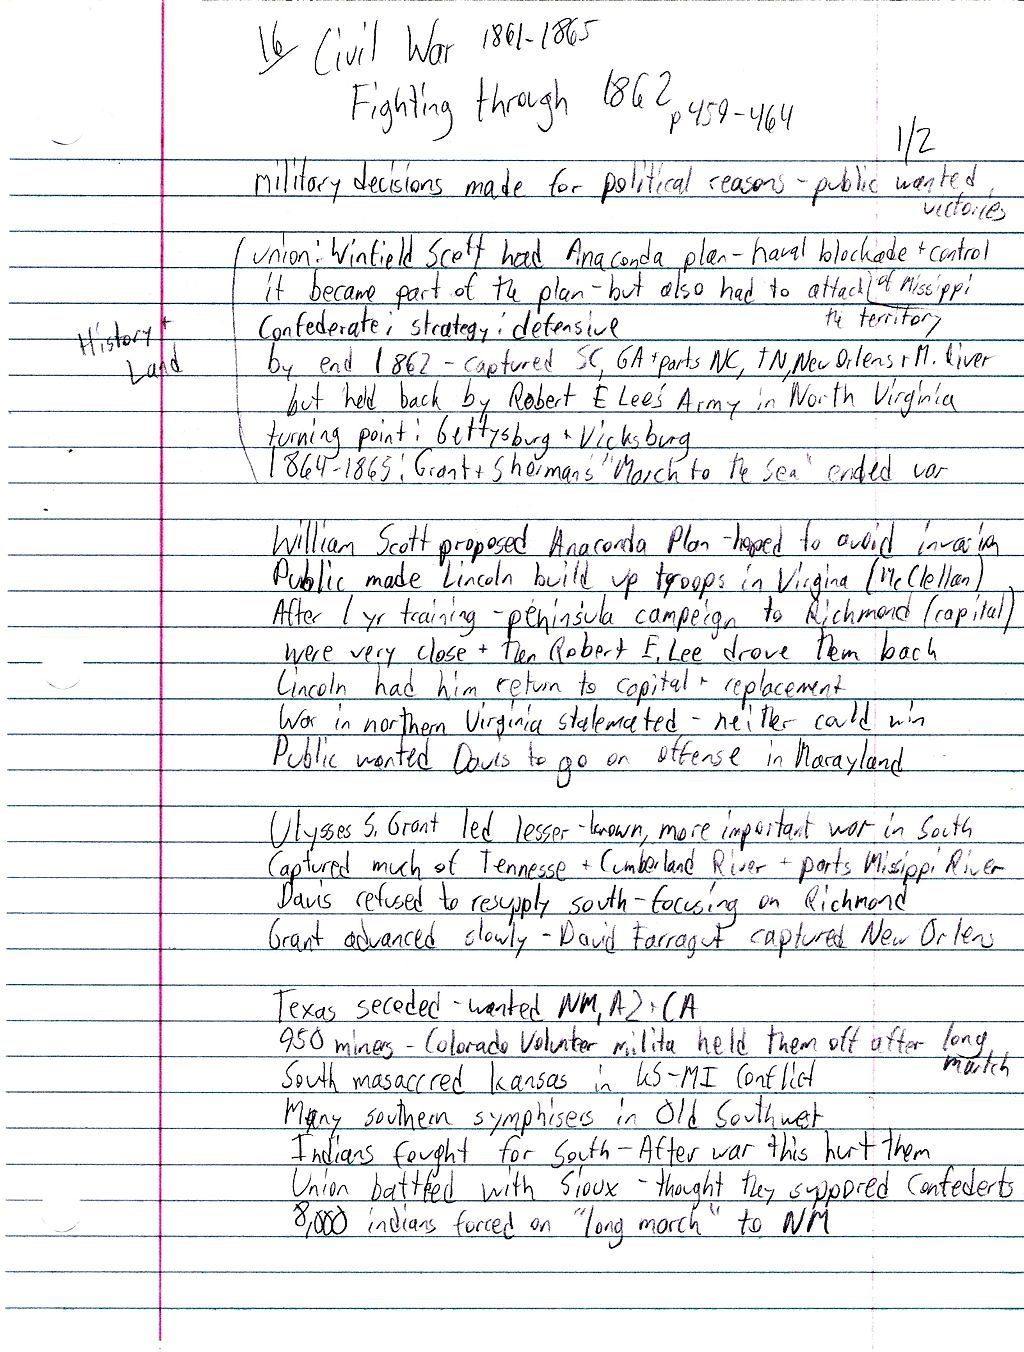 16 Civil War 1861-1865
Fighting through 1862 p459-464
1/2
military decisions made for political reasons - public wanted
victories
Union: Winfield Scott had Anaconda plan - naval blockade + control
it became part of the plan - but also had to attack of Missippi
the territory
Confederate: strategy: defensive
History +
Land
by end 1862 - captured SC, GA + parts NC, TN, New Orlens + M. River
but held back by Robert E Lee's Army in North Virginia
turning point: Gettysburg + Vicksburg
1864-1865: Grant + Sherman's "March to the Sea" ended war
William Scott proposed Anaconda Plan - hoped to avoid invasion
Public made Lincoln build up troops in Virgina (McClellan)
After 1 yr training - peninsula campeign to Richmond (capital)
were very close + then Robert E. Lee drove them back
Lincoln had him return to capital + replacement
War in northern Virginia stalemated - neither could win
Public wanted Davis to go on offense in Marayland
Ulysses S. Grant led lesser-known, more important war in South
Captured much of Tennesse + Cumberland River + parts Misippi River
Davis refused to resupply south - focusing on Richmond
Grant advanced slowly - David Farragut captured New Orlens
Texas seceded - wanted NM, AZ + CA
950 miners - Colorado Volunter milita held them off after long
march
South masaccred Kansas in KS-MI Conflict
Many southern symphisers in Old Southwest
Indians fought for South - After war this hurt them
Union battled with Sioux - thought they suppored Confederts
8,000 indians forced on "long march" to NM